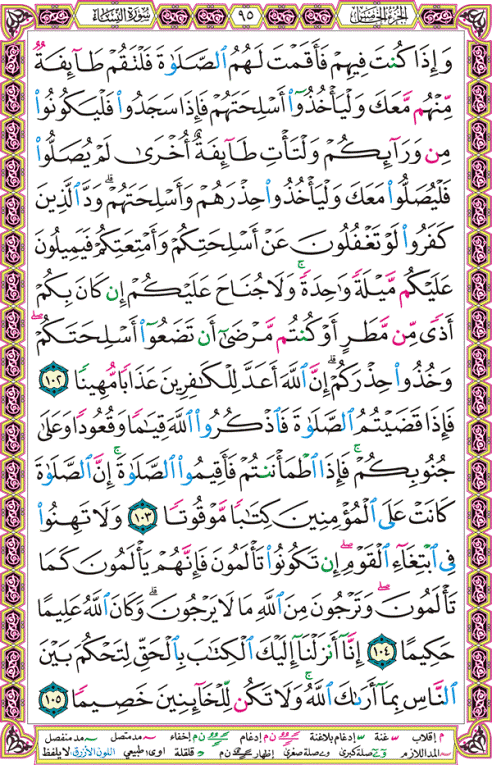 الجزء الخامس ٩٥ سورة النساء
وَإِذَا كُنتَ فِيهِمْ فَأَقَمْتَ لَهُمُ ٱلصَّلَوٰةَ فَلْتَقُمْ طَآئِفَةٌ
مِّنْهُم مَّعَكَ وَلْيَأْخُذُوٓا۟ أَسْلِحَتَهُمْ فَإِذَا سَجَدُوا۟ فَلْيَكُونُوا۟
مِن وَرَآئِكُمْ وَلْتَأْتِ طَآئِفَةٌ أُخْرَىٰ لَمْ يُصَلُّوا۟
فَلْيُصَلُّوا۟ مَعَكَ وَلْيَأْخُذُوا۟ حِذْرَهُمْ وَأَسْلِحَتَهُمْ ۗ وَدَّ ٱلَّذِينَ
كَفَرُوا۟ لَوْ تَغْفُلُونَ عَنْ أَسْلِحَتِكُمْ وَأَمْتِعَتِكُمْ فَيَمِيلُونَ
عَلَيْكُم مَّيْلَةً وَٰحِدَةً ۚ وَلَا جُنَاحَ عَلَيْكُمْ إِن كَانَ بِكُمْ
أَذًى مِّن مَّطَرٍ أَوْ كُنتُم مَّرْضَىٰٓ أَن تَضَعُوٓا۟ أَسْلِحَتَكُمْ ۖ
وَخُذُوا۟ حِذْرَكُمْ ۗ إِنَّ ٱللَّهَ أَعَدَّ لِلْكَٰفِرِينَ عَذَابًا مُّهِينًا ١٠٢
فَإِذَا قَضَيْتُمُ ٱلصَّلَوٰةَ فَٱذْكُرُوا۟ ٱللَّهَ قِيَٰمًا وَقُعُودًا وَعَلَىٰ
جُنُوبِكُمْ ۚ فَإِذَا ٱطْمَأْنَنتُمْ فَأَقِيمُوا۟ ٱلصَّلَوٰةَ ۚ إِنَّ ٱلصَّلَوٰةَ
كَانَتْ عَلَى ٱلْمُؤْمِنِينَ كِتَٰبًا مَّوْقُوتًا ١٠٣ وَلَا تَهِنُوا۟
فِى ٱبْتِغَآءِ ٱلْقَوْمِ ۖ إِن تَكُونُوا۟ تَأْلَمُونَ فَإِنَّهُمْ يَأْلَمُونَ كَمَا
تَأْلَمُونَ ۖ وَتَرْجُونَ مِنَ ٱللَّهِ مَا لَا يَرْجُونَ ۗ وَكَانَ ٱللَّهُ عَلِيمًا
حَكِيمًا ١٠٤ إِنَّآ أَنزَلْنَآ إِلَيْكَ ٱلْكِتَٰبَ بِٱلْحَقِّ لِتَحْكُمَ بَيْنَ
ٱلنَّاسِ بِمَآ أَرَىٰكَ ٱللَّهُ ۚ وَلَا تَكُن لِّلْخَآئِنِينَ خَصِيمًا ١٠٥
م إقلاب غنة إدغام بلاغنة ن م إدغام ن م إخفاء مد متصل مد منفصل
المد اللازم صلة كبرى وصلة صغرى إظهار ن م قلقلة اوى: طبيعي اللون الأزرق: لا يلفظ